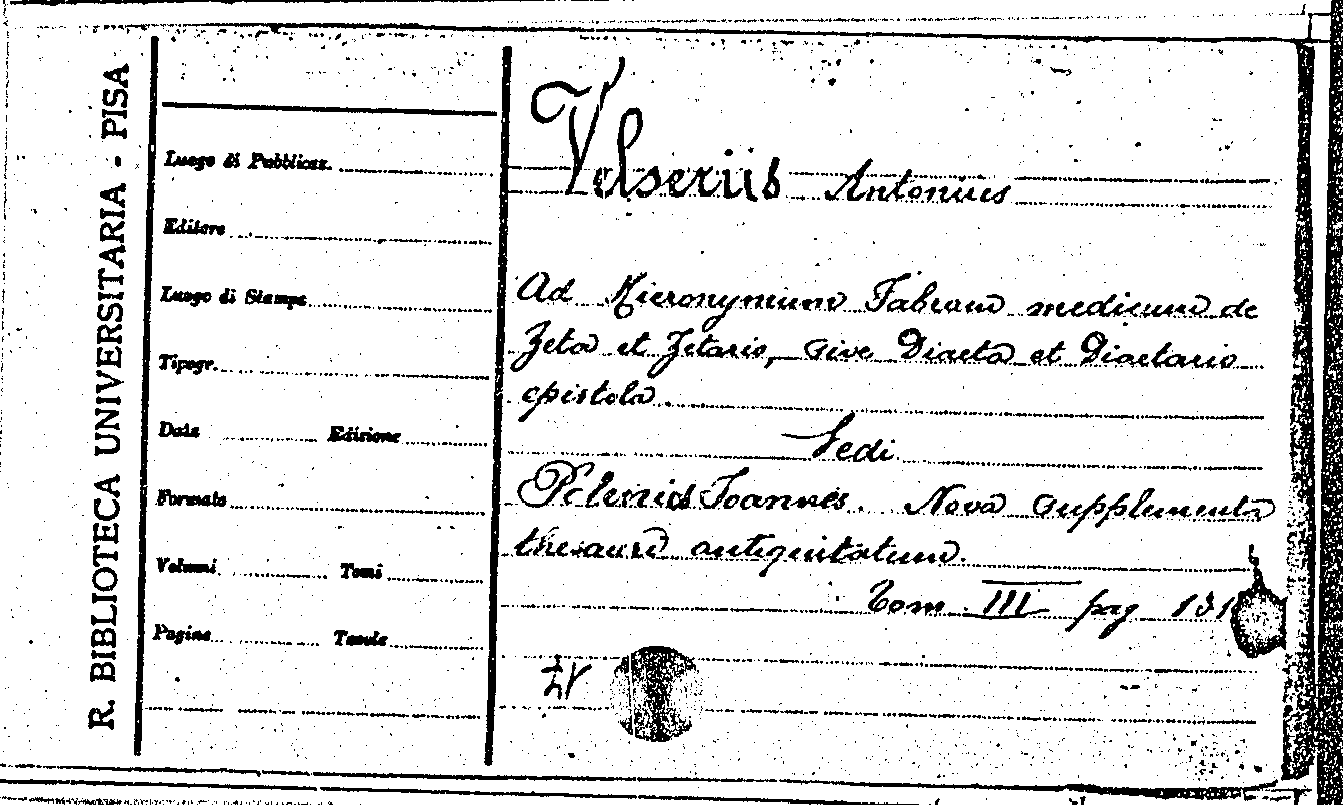 R. BIBLIOTECA UNIVERSITARIA - PISA
Luogo di Pubblicaz.
Editore
Luogo di Stampa
Tipogr.
Data Edizione
Formato
Volumi Tomi
Pagine Tavole
Velserius Antonius
Ad Hieronymum Fabrum medicum de
Zeta et Zetario, sive Diaeta et Diaetario
epistola.
Vedi
Polenus Joannes. Nova supplementa
thesauri antiquitatum.
Tom III pag